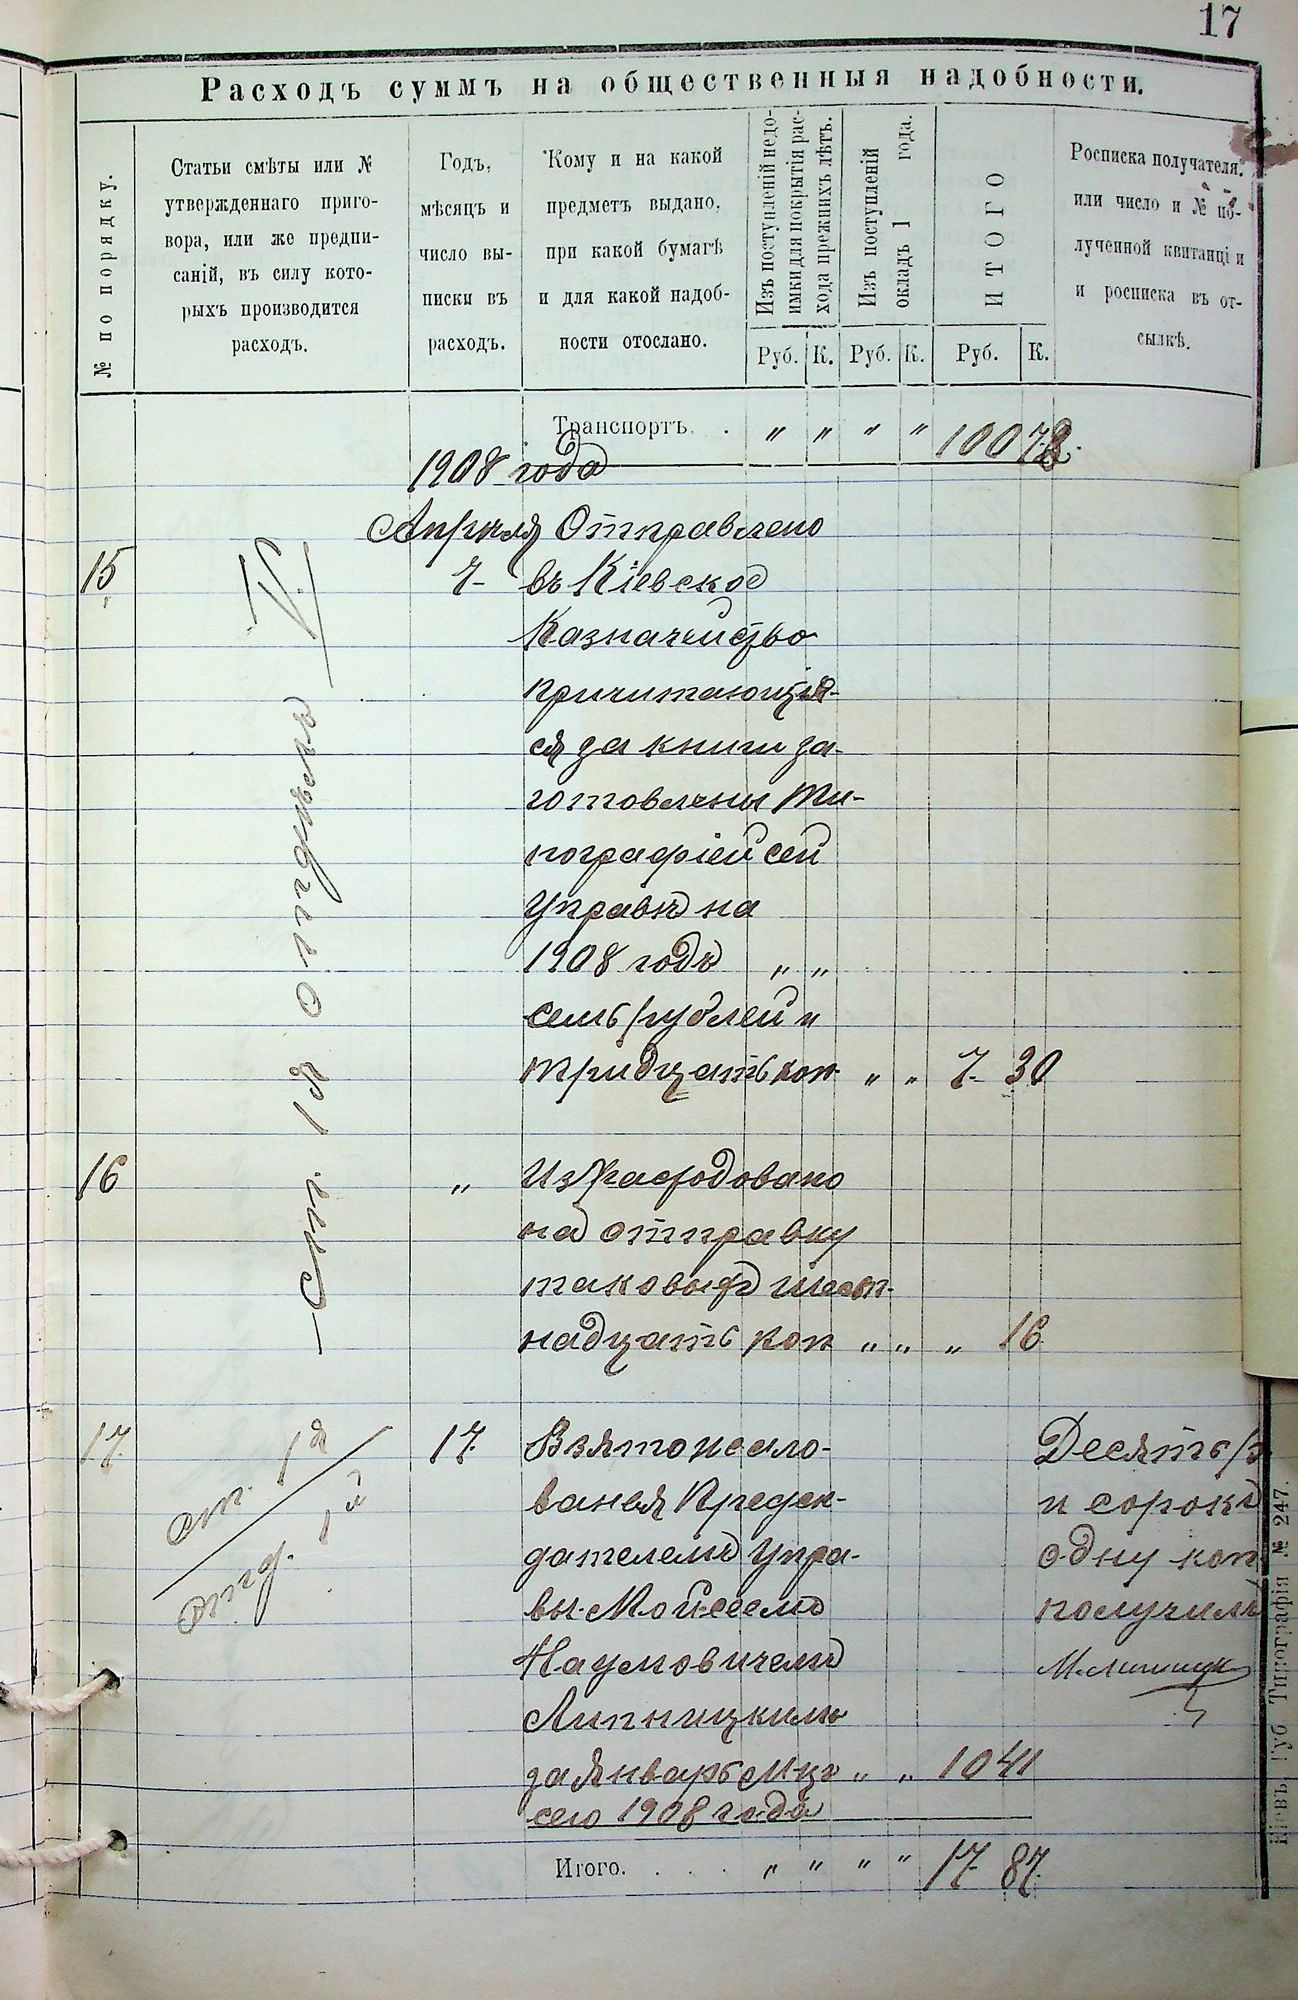 17
Расходъ суммъ на общественныя надобности.
№ по порядку.
Статьи смѣты или №
утвержденнаго приго-
вора, или же предпи-
саній, въ силу кото-
рыхъ производится
расходъ.
Годъ,
мѣсяцъ и
число вы-
писки въ
расходъ.
Кому и на какой
предметъ выдано,
при какой бумагѣ
и для какой надоб-
ности отослано.
Изъ поступленій недо-
имки для покрытія рас-
хода прежнихъ лѣтъ.
Изъ поступленій
окладъ 1 года.
ИТОГО
Росписка получателя.
или число и № по-
лученной квитанціи
и росписка въ от-
сылкѣ.
Руб. К. Руб. К. Руб. К.
Транспортъ. . " " " " 100 72
1908 года
Апрѣля Отправлено
15 7 въ Кіевское
Казначейство
причитающія-
ся за книги за-
готовлены Ти-
пографіей сей
Управѣ на
1908 годъ " "
семь рублей и
тридцать коп " " 7 30
16 " Израсходовано
на отправку
таковыхъ шест-
надцать коп " " " 16
17 17 Взято
Председ-
дателемъ Упра-
вы Мойсеемъ
Наумовичемъ
Липницкимъ
за Январь м-цъ " " 10 41
сего 1908 года
Итого. . . . . " " " " 17 87
ст.
отдѣлъ
ст. 1я
отд. 1й
Десять р
и сорокъ
одну коп
получилъ
Кіевъ, Губ. Типографія № 247.